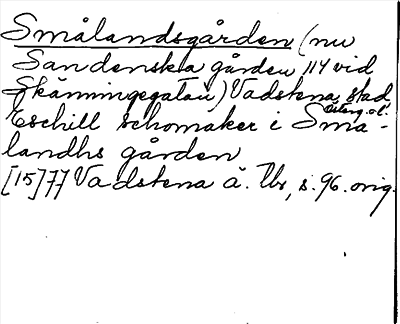 Smålandsgården (nu
Sandenska gården 114 vid
Skänningegatan) Vadstena stad
Österg. ol.
Eschill schomaker i Små-
landhs gården
[15]77 Vadstena ä. Tb, s. 96. orig.